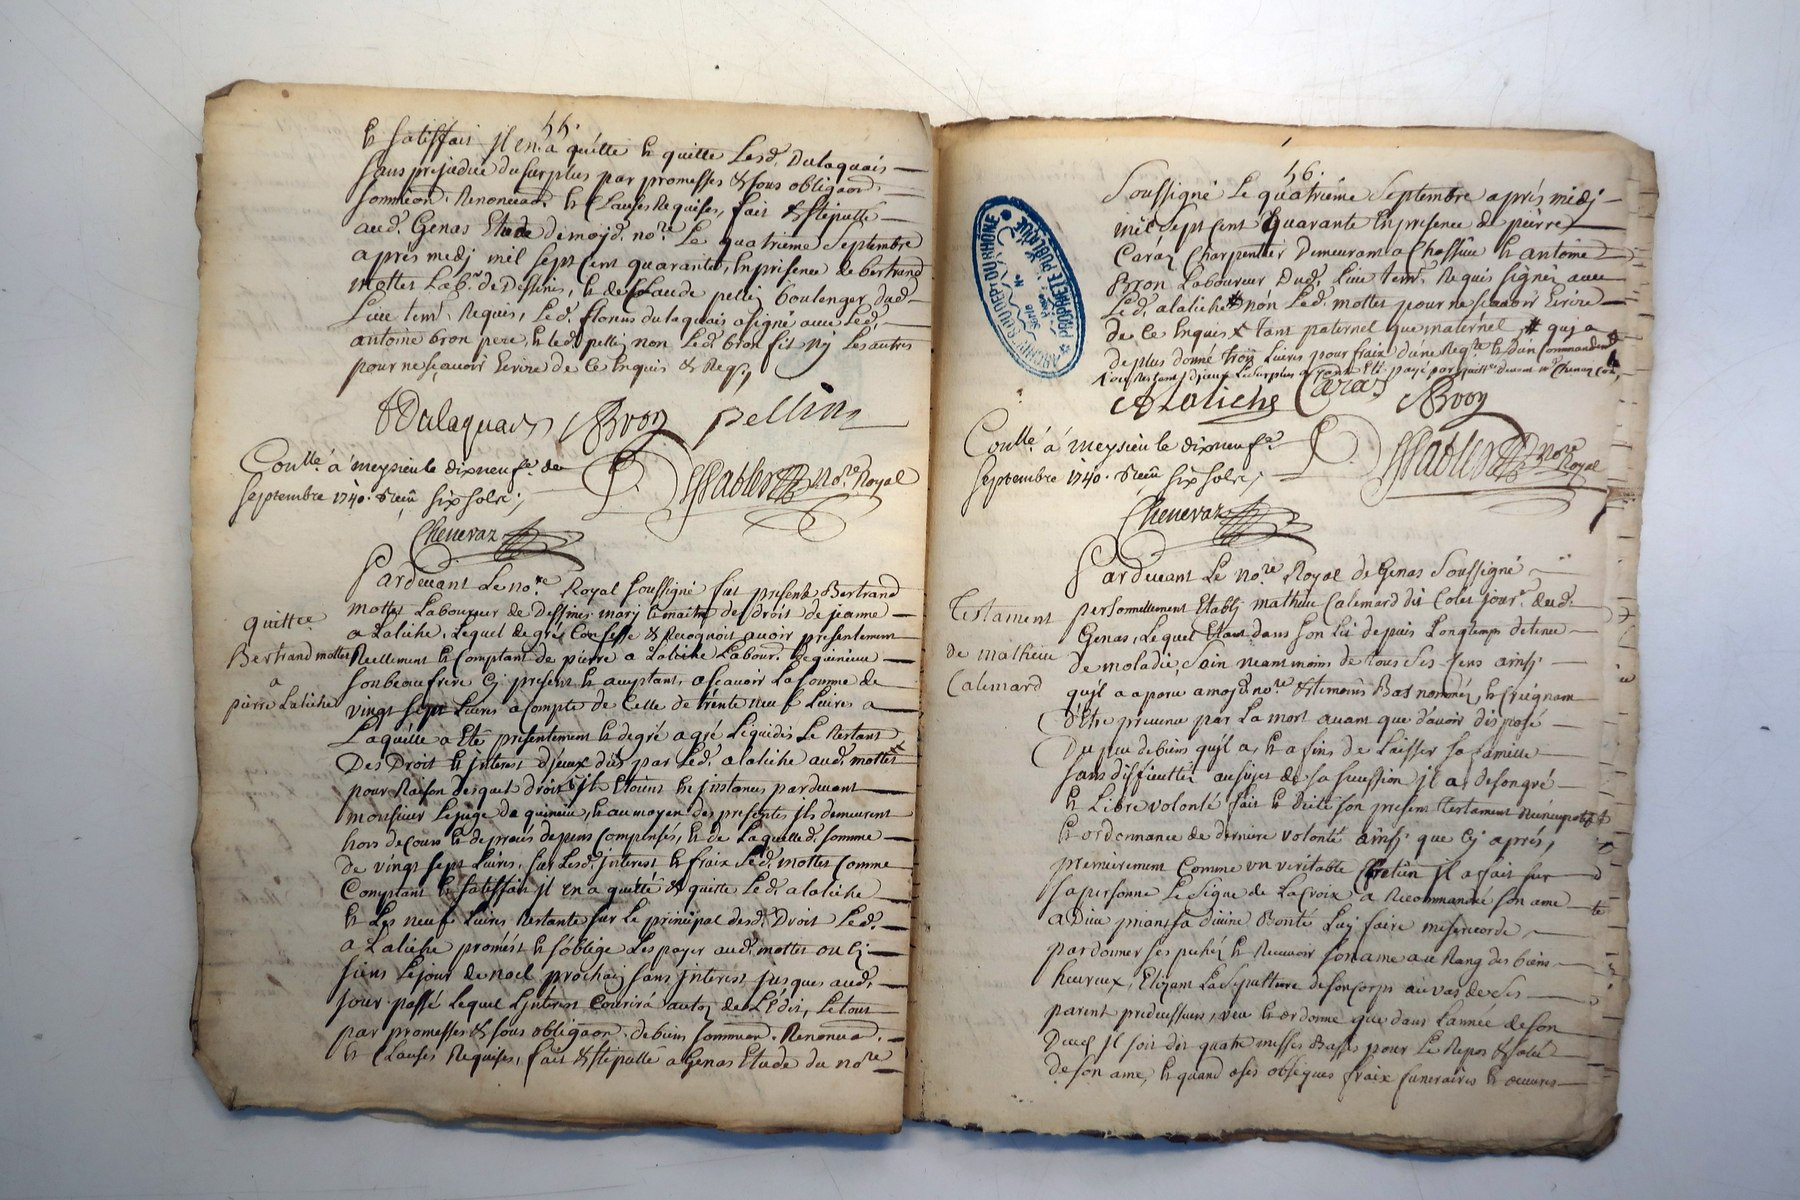 55.
& satisffait il en a quitté & quitte Led. Dulaquais
sans prejudice du surplus par promesses & sous obligaon.
soumiĕon. Renonciaon. & Clauses Requises, fait & stipullé
aud. Genas Etude de moyd. nore. Le quatrieme Septembre
apres medj mil sept cent quarante, En présence de bertrand
mottet Labr. de Dessines, & de Claude pellin boulenger dud.
Lieu temt. Requis, Led. dulaquais a signé avec Led.
antoine bron pere, & led. pellin non Led. bron fils ny les autres
pour ne sçavoir Ecrire de ce Enquis & Reqs.
Dulaquais ABron pellin
Conllé. á meysieu le dixneufe. de
septembre 1740. Receu six sols;
Nore. Royal
Chenevaz
Pardevant Le nore. Royal soussigné fut présent Bertrand
mottet Laboureur de Dessines mary & maitre des droit de jeanne
quittce
a Laliche, Lequel de gré Confesse & Recognoit avoir présentement
Bertrand mottet
Reellement & Comptant de pierre a Laliche Labour. de quinieu
a
son beaufrere Cy present & acceptant, a sçavoir La somme de
pierre Laliche
vingt sept Livres à compte de Celle de trente neuf Livres a
Laquelle a Eté présentement & de gré a gré Liquidés Le Restant
Des Droit & Interest d'jceux dus par Led. alaliche aud. mottet
pour Raison desquel droits jls Etoient En jnstances pardevant
monsieur Le juge de quinieu, & au moyen des presentes jls demeurent
hors de Cours & de procés depens Compensés, & de Laquelled. somme
de vingt sept Livres, sur Lesd. jnterest & fraix Led. mottet Comme
Comptant & satisffait jl en a quitté & quitte Led. alaliche
& Les neuf Livres Restante sur Le principal desd. Droit Led.
a Laliche promést & s'oblige Les payer aud. mottet ou Ez
siens Le jour de noel prochain sans jnterest jusques aud.
jour passé Lequel L'jnterest Courira au taux de L'Edit, Le tout
par promesses & sous obligaon. de biens soumiĕon. Renonciaon.
& Clauses Requises, fait & stipullé a Genas Etude du nore
56.
Soussigné Le quatriéme Septembre aprés midj
mil sept cent Quarante En presence de pierre
Caraz Charpentier Demeurant a Chassieu & antoine
Bron Laboureur Dud. Lieu temt. Requis signés avec
Led. alaliche non Led. mottet pour ne sçavoir Ecrire
de ce Enquis tant paternel que maternel qui a
de plus donné trois Livres pour fraix d'une Reqte. & d'un Commandemt.
ALaliche Caraz ABron
Conllé. á meysieu le dixneufe.
septembre 1740. Receu six sols;
Nore. Royal
Chenevaz
Pardevant Le nore. Royal de Genas Soussigné
Testament
personnellement Etably mathieu Calemard dit Colet jourr. dud.
Genas, Lequel Etant dans son Lit depuis Longtemps detenue
de Mathieu
de maladie, sain neantmoins de tous ses sens ainsy
Calemard
qu'jl a aparu a moyd. nore. & temoins Bas nommés, & Craignant
D'Etre prevenue par La mort avant que d'avoir disposé
Du peu de biens qu'jl a, & a fins de Laisser sa famille
sans difficultté au sujet de sa succession jl a de son gré
& Libre volonté fait & dicté son présent testament Nuncupatif
& ordonnance de derniere volonté ainsy que cy aprés,
premierement Comme un veritable Chretien jl a fait sur
sa personne Le signe de La Croix a Recommandé son ame
a Dieu priant sa divine Bonté Luy faire misericorde
pardonner ses pechés & Recevoir son ame au Rang des biens
heureux, Elizant La sepulture de son Corps au vas de ses
parent predecesseurs, veu & ordonne que dans L'année de son
Deces jl soit dit quatre messes Basses pour Le Repos & salut
de son ame, & quand a ses obseques fraix funeraires & œuvres